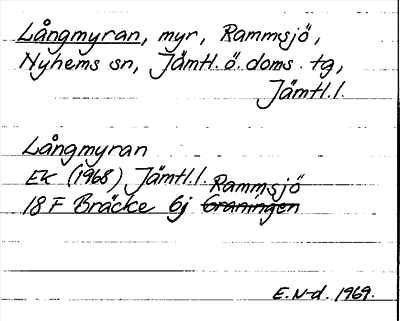 Långmyran, myr, Rammsjö,
Nyhems sn, Jämtl.ö.doms. tg,
Jämtl.l.
Långmyran
EK (1968) Jämtl.l.
Rammsjö
18 F Bräcke 6j Graningen
E.N-d. 1969.